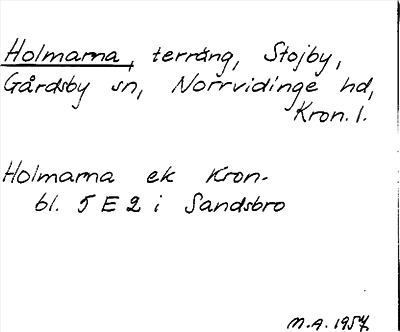 Holmarna, terräng, Stojby,
Gårdsby sn, Norrvidinge hd,
Kron. l.
Holmarna ek Kron-
bl. 5 E 2 i Sandsbro
M.A. 1957.